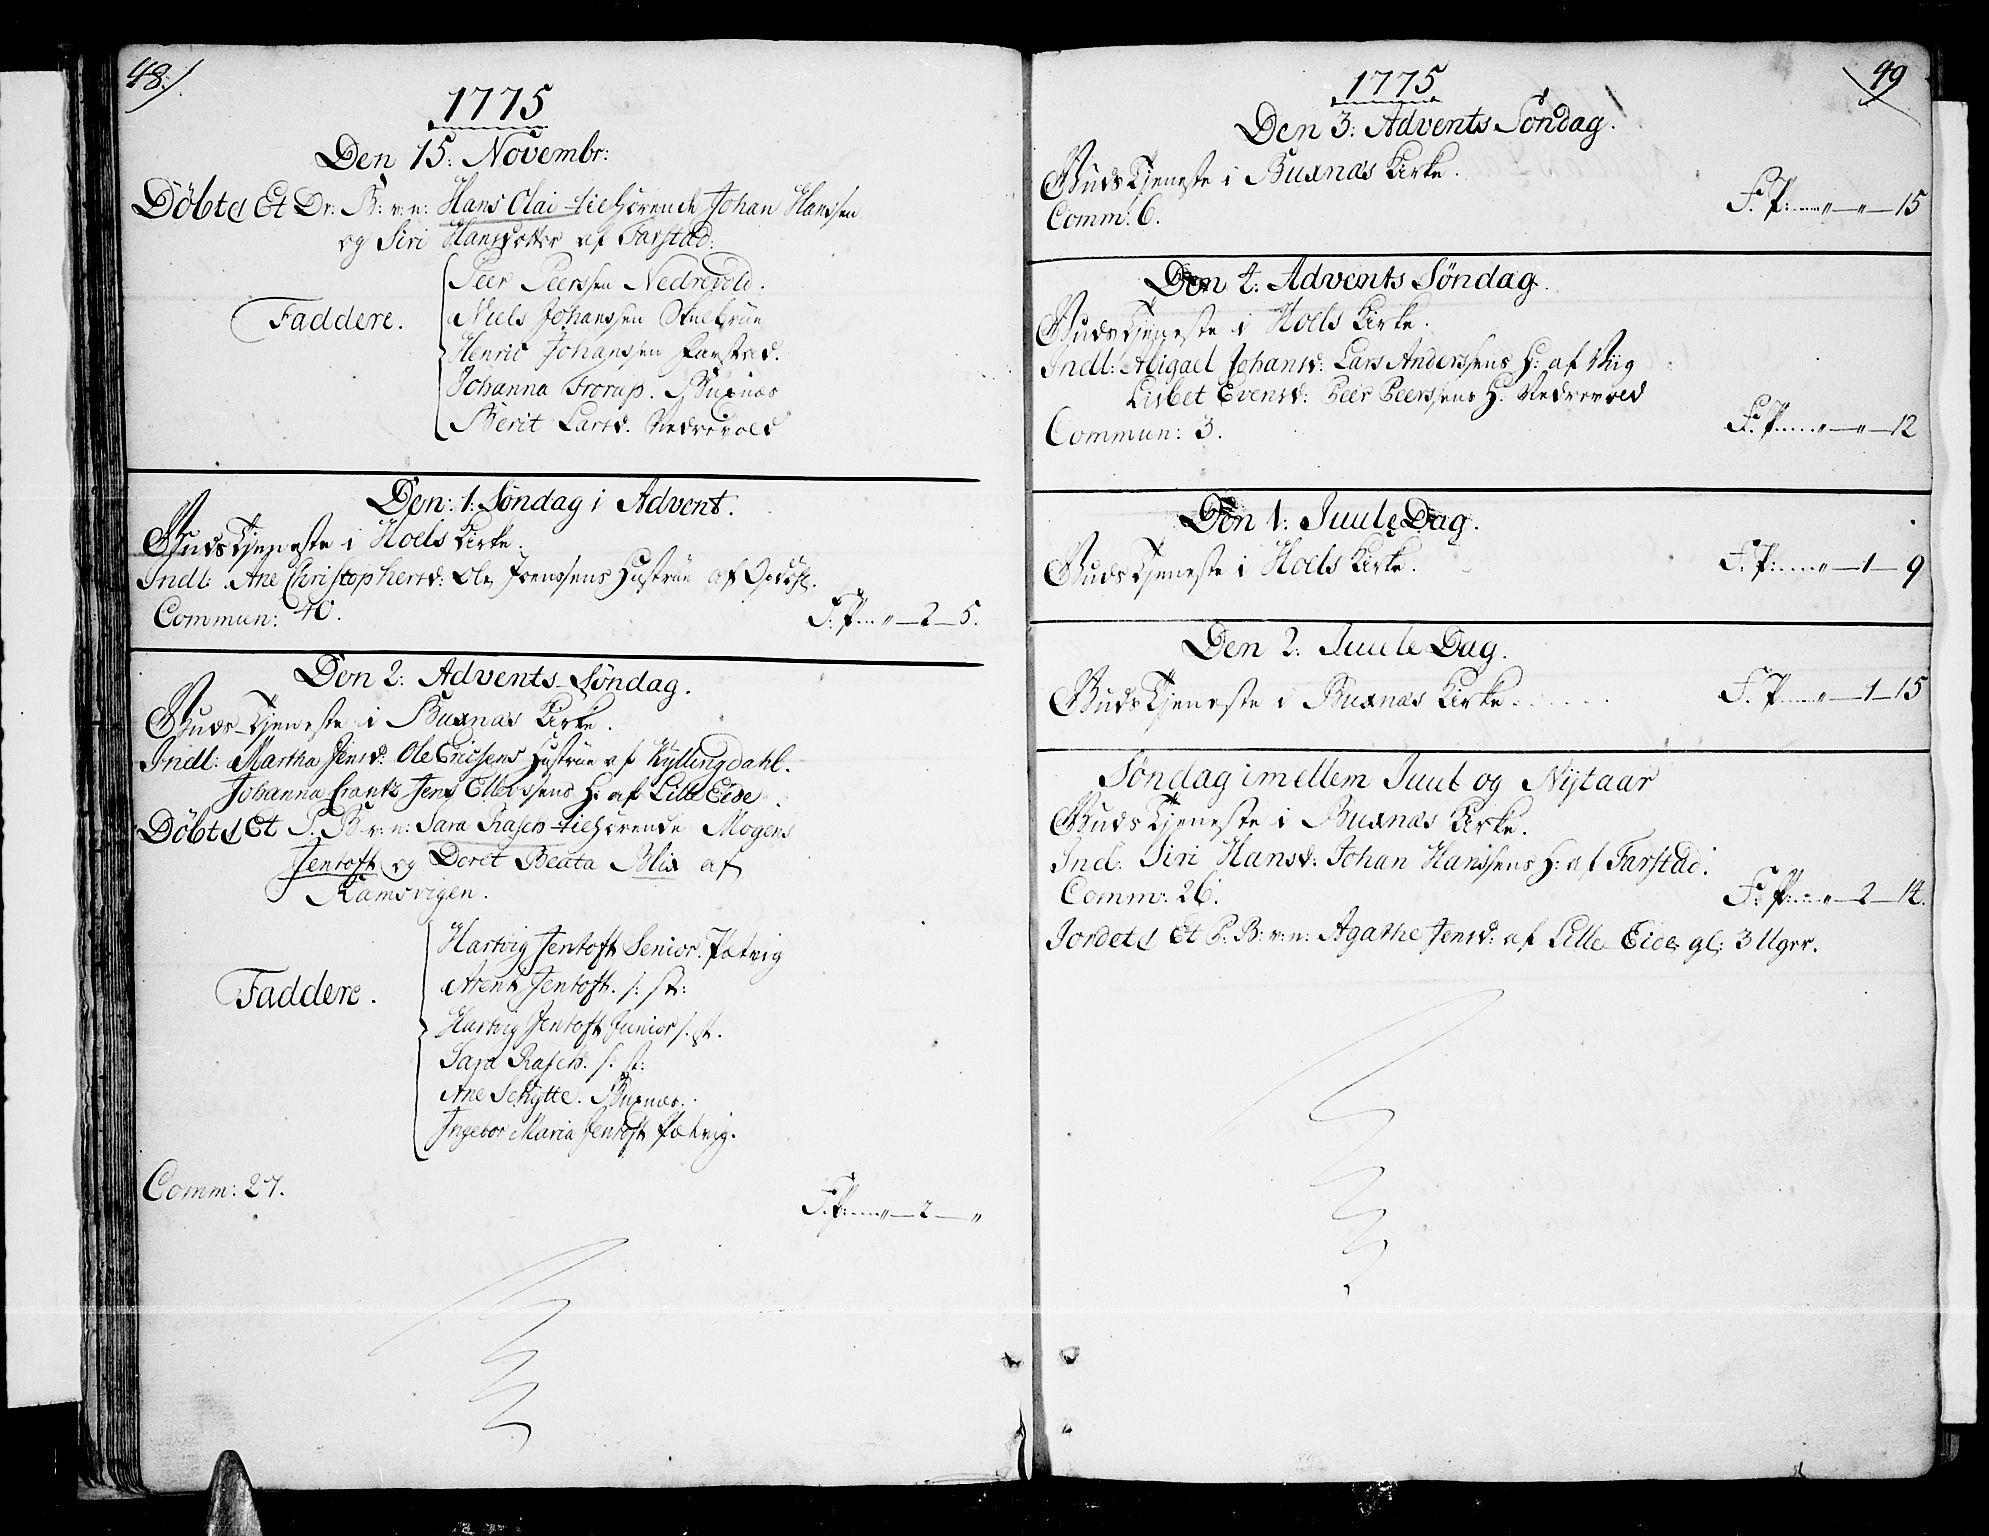 48.
1775
Den 15: Novembr:
Döbtes Et Dr: B: v: n: Hans Olai tilhörende Johan Hanssen
og Siri Hansdotter af Farstad.
Peer Peerssen Nedrevold.
Faddere. Niels Johanssen
Henric Johanssen Farstad.
Johanna Frorup. Buxnæs
Berit Larsd. Nedrevold
Den: 1: Søndag i Advent.
Guds Tjeneste i Hoels Kirke.
Indl: Ane Christophersd: Ole Joenssens Hustrue af
Commun: 40. F: P: " 2 5.
Den 2: Advents Søndag.
Guds Tjeneste i Buxnæs Kirke.
Indl: Martha Jensd: Ole Ericsens Hustrue af Kyllingdahl.
Johanna Crantz Jens Ellevssens H: af Lille Eide.
Döbtes Et P. B: v: n: Sara Rasch tilhörende Mogens
Jentoft og Doret Beata Blix af
Ramsvigen.
Hartvig Jentoft Senior. Petvig
Faddere. Arent Jentoft. s: st:
Hartvig Jentoft Junior s. st.
Sara Rasch. s: st:
Ane Schytte. Buxnæs.
Ingebor Maria Jentoft Petvig.
Comm: 27.
F: P: " 2 "
49
1775
Den 3: Advents Søndag.
Guds Tjeneste i Buxnæs Kirke.
Comm: 6. F: P: " " 15
Den 4: Advents Søndag.
Guds Tjeneste i Hoels Kirke.
Indl: Abigael Johansd: Lars Anderssens H: af Viig
Lisbet Evensd: Peer Peerssens H: Nedrevold
Commun: 3. F: P: " " 12
Den 1: Juule Dag.
Guds Tjeneste i Hoels Kirke. F: P: " 1 9
Den 2: Juule Dag.
Guds Tjeneste i Buxnæs Kirke. F: P: " 1 15
Søndag imellem Juul og Nytaar
Guds Tjeneste i Buxnæs Kirke.
Ind: Siri Hansd: Johan Hanssens H: af Farstad.
Comm: 26. F: P: " 2 14.
Jordets Et P: B: v: n: Agathe Jensd: af Lille Eide gl: 3 Uger.